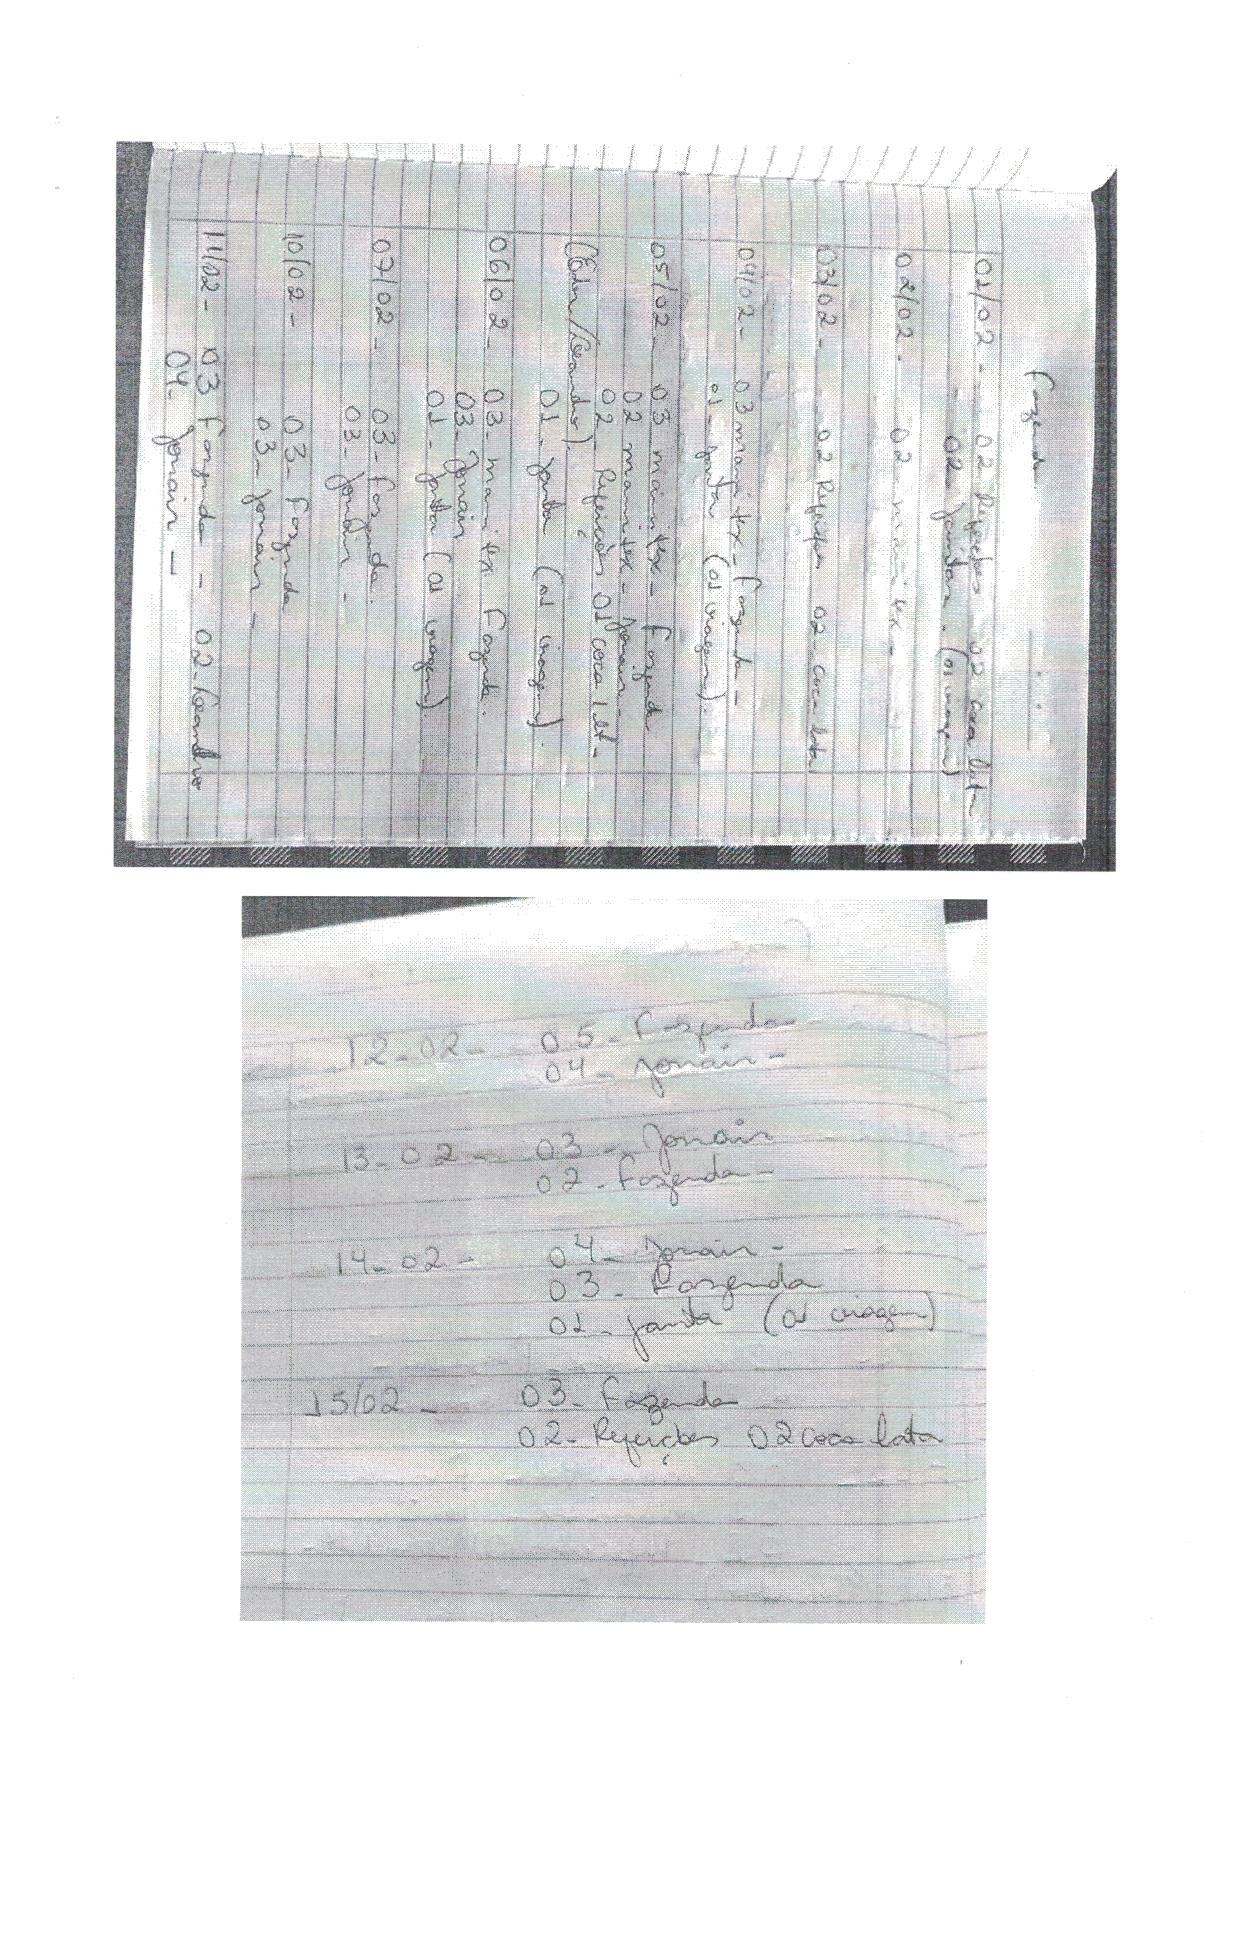 Fazenda
01/02 - 02 Refeições 02 coca lata
- 02 Jantar - (01 viagem)
02/02 - 02 - marmitex -
03/02 - 02 Refeições 02 coca lata
04/02 - 03 marmitex - Fazenda -
01 - janta (01 viagem).
05/02 - 03 marmitex - Fazenda
02 marmitex - Jonair -
02 - Refeições 01 coca 1 lt -
(Eder/Leandro).
01 - janta (01 viagem).
06/02 - 03 - marmitex Fazenda.
03 - Jonair
01 - janta (01 viagem).
07/02 - 03 - Fazenda.
03 - Jonair -
10/02 - 03 - Fazenda
03 - Jonair -
11/02 - 03 Fazenda - 02 - Leandro
04 - Jonair -
12-02- 05 - Fazenda
04 - Jonair -
13-02 - 03 - Jonair
02 - Fazenda -
14-02 - 04 - Jonair -
03 - Fazenda
01 - janta (01 viagem)
15/02 - 03 - Fazenda
02 - Refeições 02 coca lata